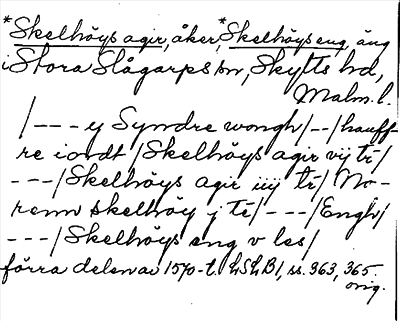 *Skelhöys agir, åker, *Skelhöys eng, äng
i Stora Slågarps sn, Skytts hd,
Malm. l.
/--- ey Syndre wongh/--/hauff-
re iordt/Skelhöys agir vij tr/
---/Skelhöys agir iiij tr/No-
renn skelhöy j tr/---/Engh/
---/Skelhöys eng v les/
förra delen av 1570-t. LSLB1, ss. 363, 365.
orig.